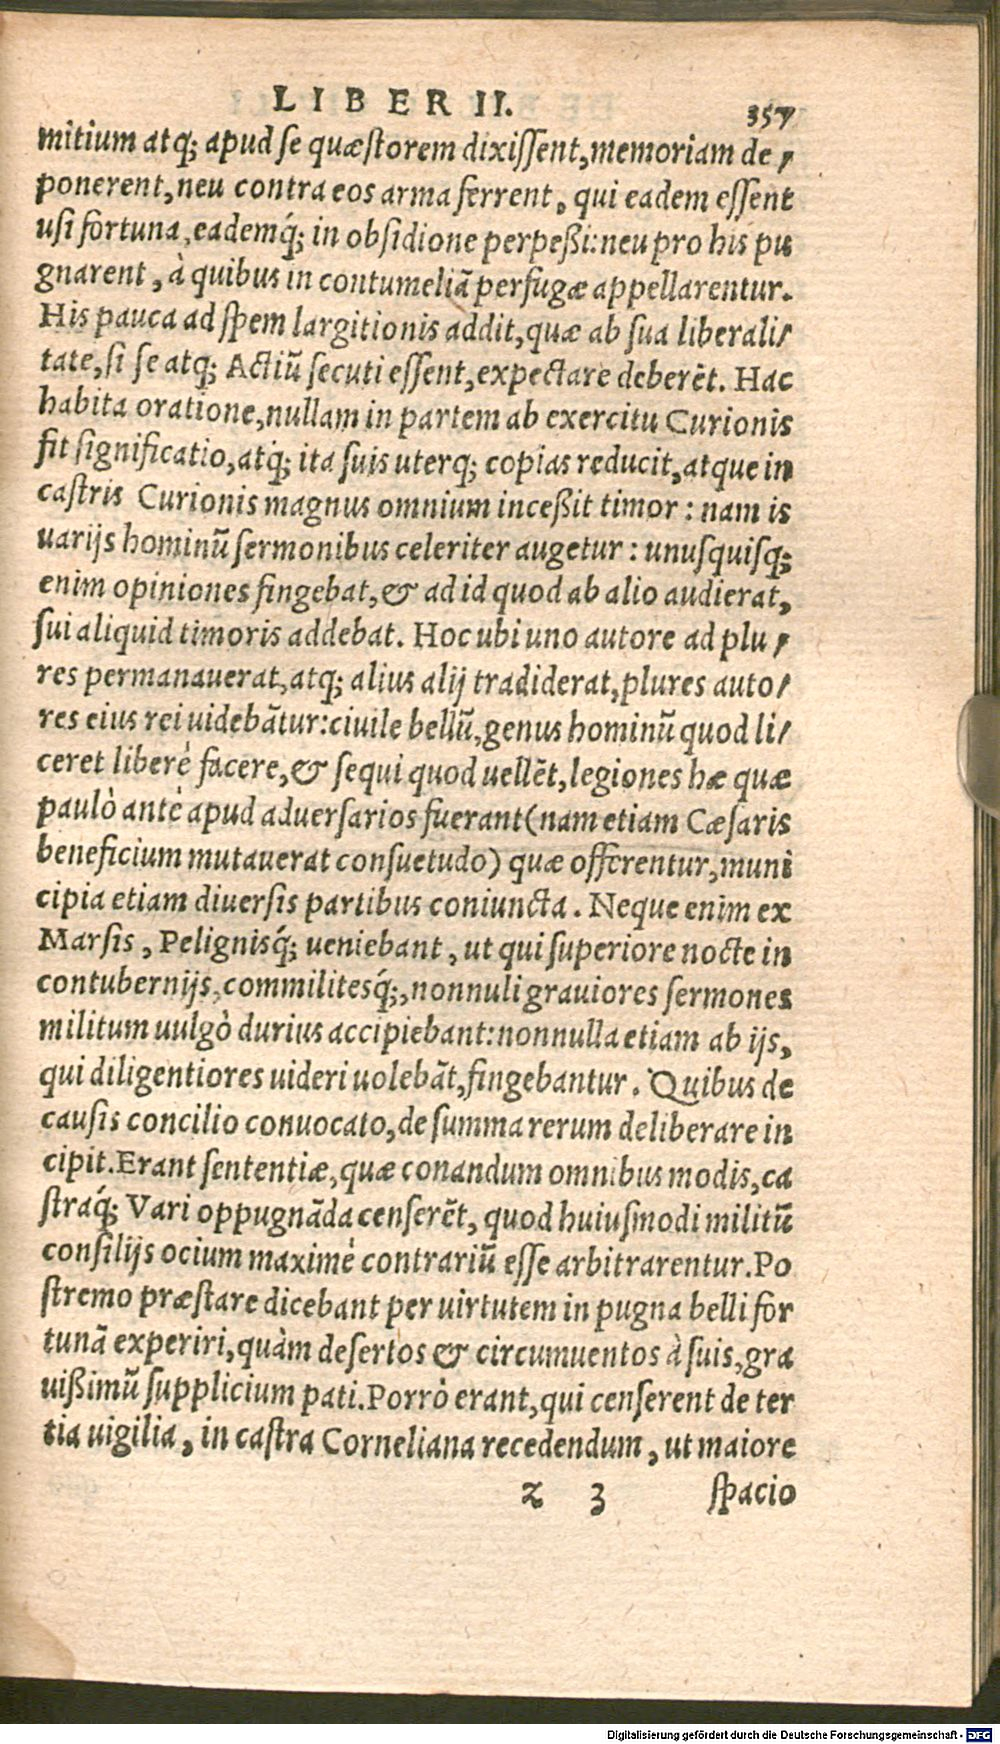 LIBER II. 357
mitium atq; apud se quæstorem dixissent, memoriam de,
ponerent, neu contra eos arma ferrent, qui eadem essent
usi fortuna, eademq́; in obsidione perpeßi: neu pro his pu
gnarent, à quibus in contumeliã perfugæ appellarentur.
His pauca ad spem largitionis addit, quæ ab sua liberali/
tate, si se atq; Actiũ secuti essent, expectare deberẽt. Hac
habita oratione, nullam in partem ab exercitu Curionis
fit significatio, atq́; ita suis uterq; copias reducit, atque in
castris Curionis magnus omnium inceßit timor: nam is
uarijs hominũ sermonibus celeriter augetur: unusquisq;
enim opiniones fingebat, & ad id quod ab alio audierat,
sui aliquid timoris addebat. Hoc ubi uno autore ad plu,
res permanauerat, atq; alius alij tradiderat, plures auto/
res eius rei uidebãtur: ciuile bellũ, genus hominũ quod li/
ceret liberè facere, & sequi quod uellẽt, legiones hæ quæ
paulò antè apud aduersarios fuerant (nam etiam Cæsaris
beneficium mutauerat consuetudo) quæ offerentur, muni
cipia etiam diuersis partibus coniuncta. Neque enim ex
Marsis, Pelignisq́; ueniebant, ut qui superiore nocte in
contubernijs, commilitesq́;, nonnuli grauiores sermones
militum uulgò durius accipiebant: nonnulla etiam ab ijs,
qui diligentiores uideri uolebãt, fingebantur. Quibus de
causis concilio conuocato, de summa rerum deliberare in
cipit. Erant sententiæ, quæ conandum omnibus modis, ca
straq́; Vari oppugnãda censerẽt, quod huiusmodi militũ
consilijs ocium maximè contrariũ esse arbitrarentur. Po
stremo præstare dicebant per uirtutem in pugna belli for
tunã experiri, quàm desertos & circumuentos à suis, gra
uißimũ supplicium pati. Porrò erant, qui censerent de ter
tia uigilia, in castra Corneliana recedendum, ut maiore
z 3 spacio
Digitalisierung gefördert durch die Deutsche Forschungsgemeinschaft - DFG